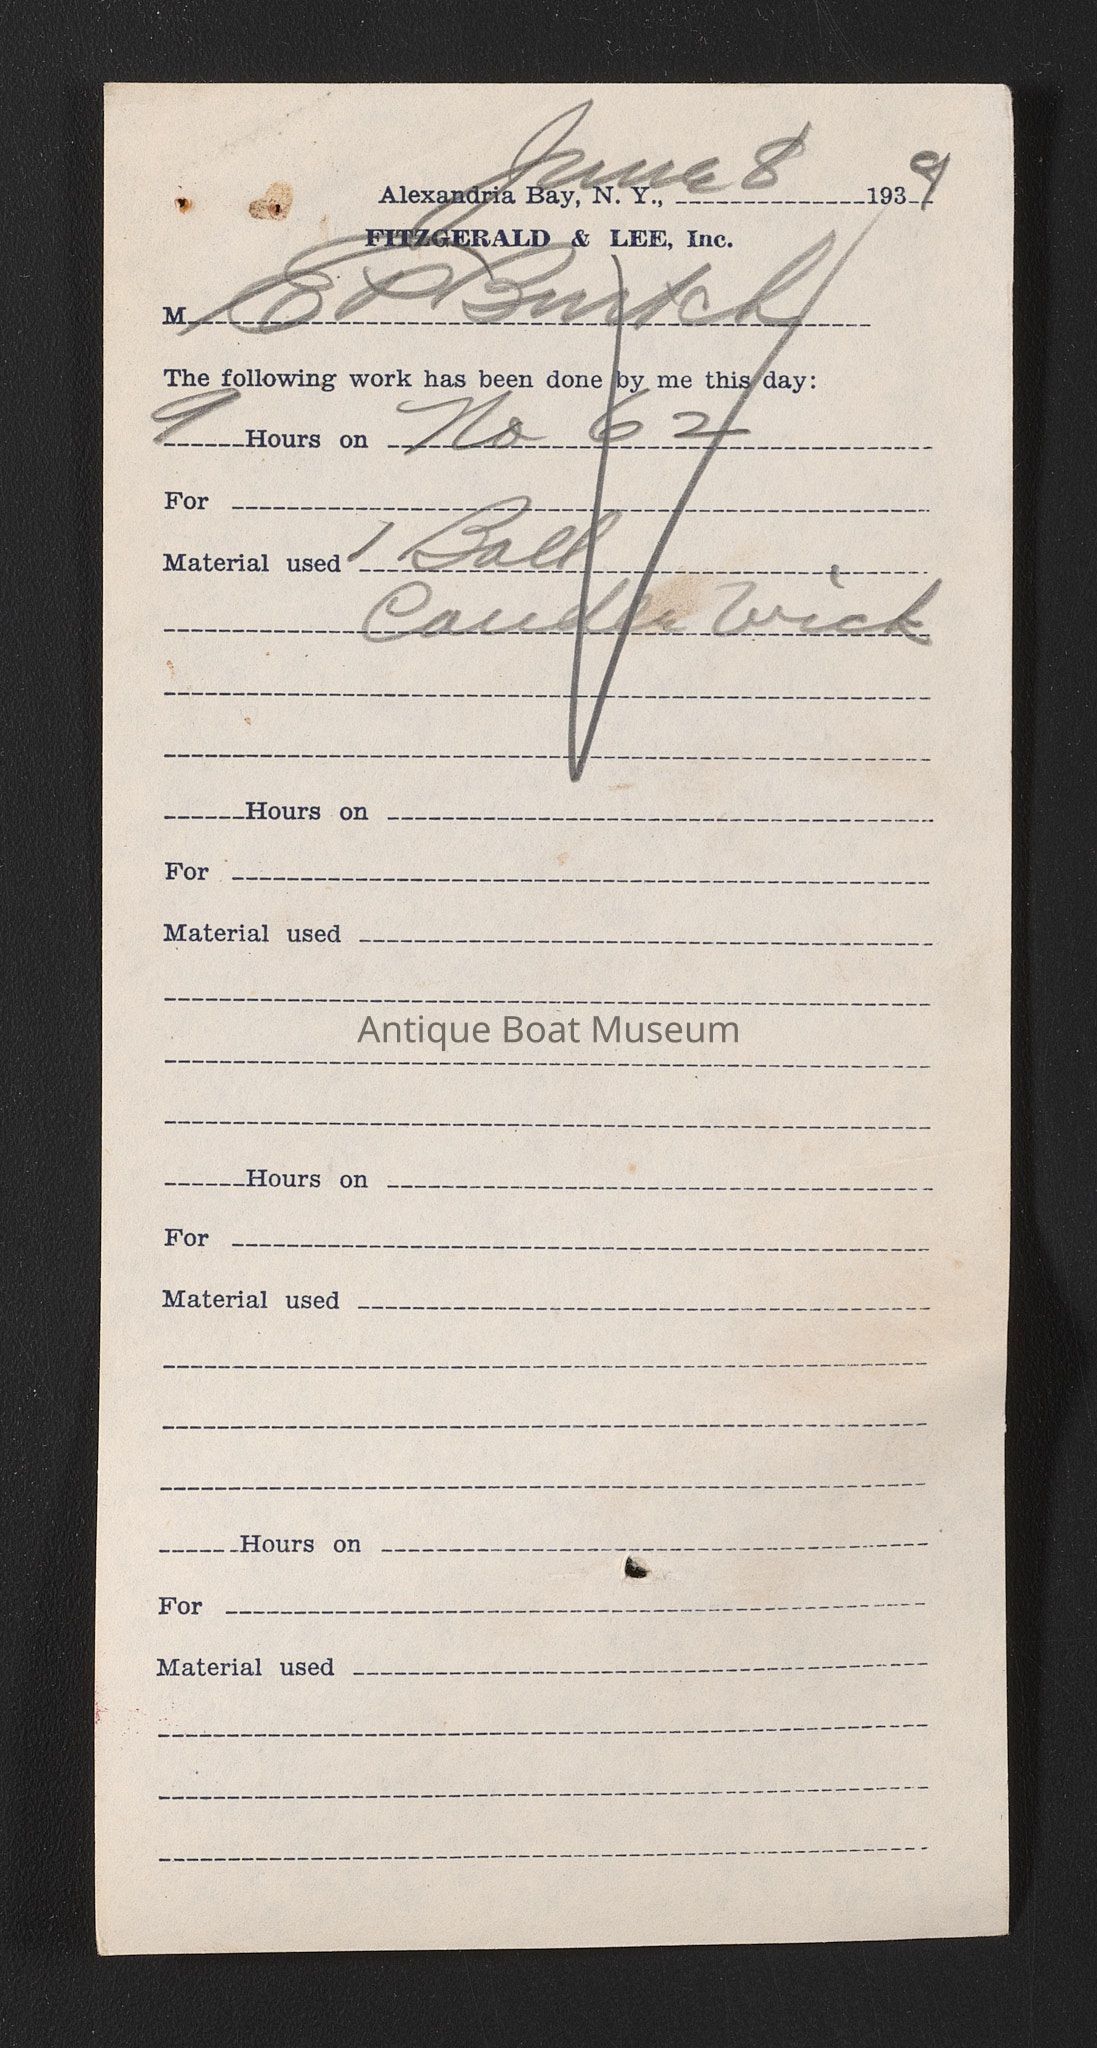 June 8
Alexandria Bay, N. Y., 1939
FITZGERALD & LEE, Inc.
M E P Burtch
The following work has been done by me this day:
9 Hours on No 62
For
Material used 1 Ball
Candle Wick
Hours on
For
Material used
Antique Boat Museum
Hours on
For
Material used
Hours on
For
Material used